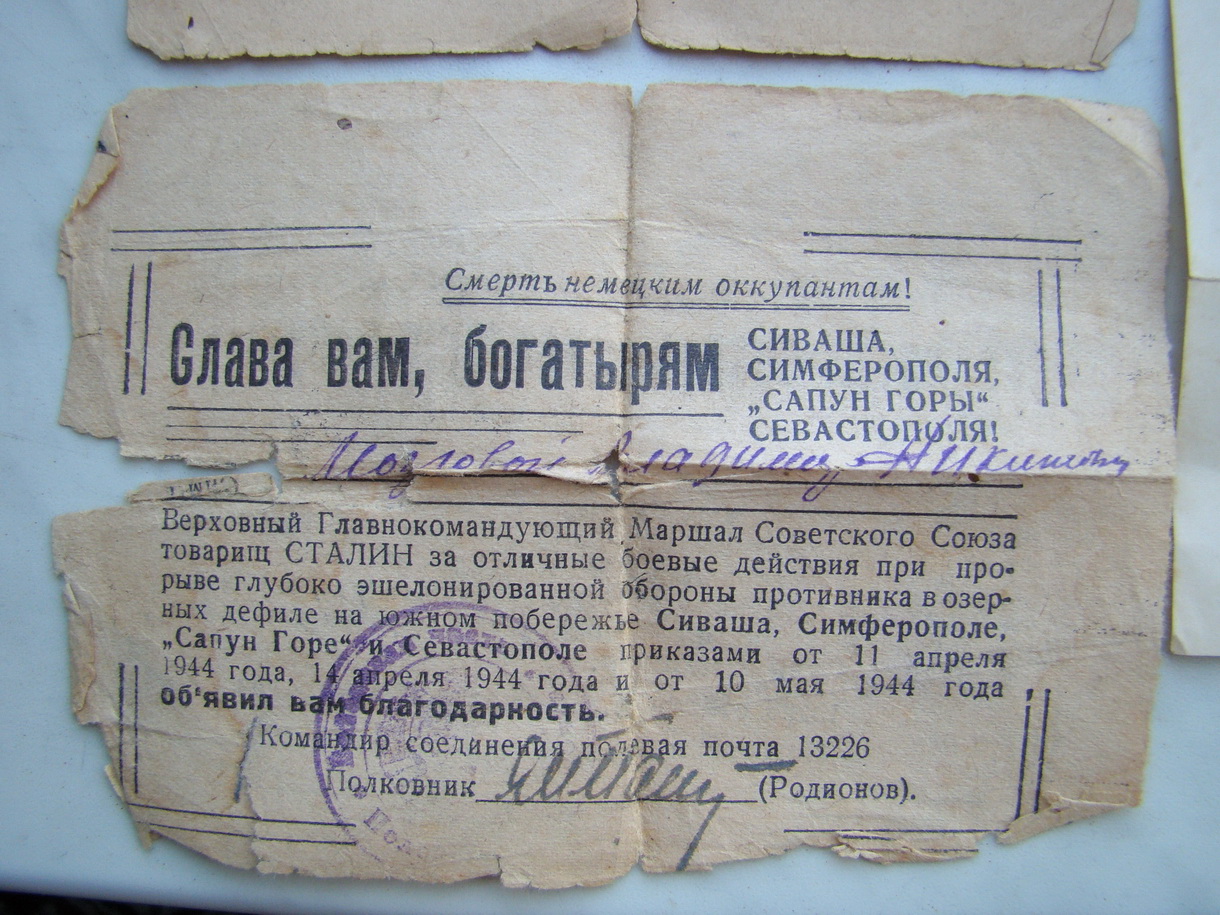 Смерть немецким оккупантам!
Слава вам, богатырям
СИВАША,
СИМФЕРОПОЛЯ,
„САПУН ГОРЫ“
СЕВАСТОПОЛЯ!
Мозговой Владимир
Верховный Главнокомандующий Маршал Советского Союза
товарищ СТАЛИН за отличные боевые действия при про-
рыве глубоко эшелонированной обороны противника в озер-
ных дефиле на южном побережье Сиваша, Симферополе,
„Сапун Горе“ и Севастополе приказами от 11 апреля
1944 года, 14 апреля 1944 года и от 10 мая 1944 года
об‘явил вам благодарность.
Командир соединения полевая почта 13226
Полковник (Родионов).